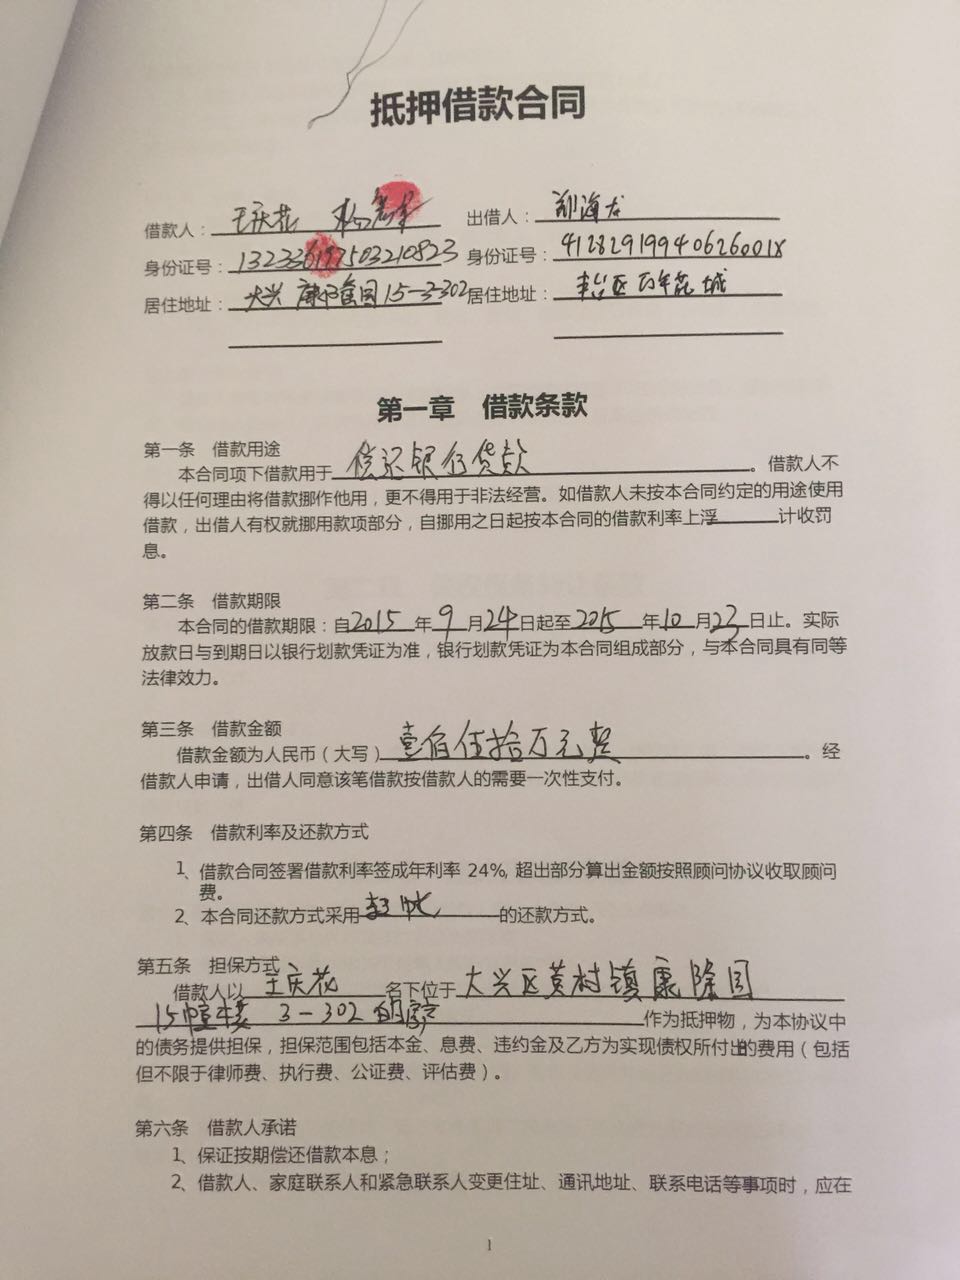 抵押借款合同
借款人： 王庆花 杨 出借人： 郭海龙
身份证号： 132336197503210823 身份证号： 412829199406260018
居住地址： 大兴 康隆园15-3-302 居住地址： 丰台区百年花城
第一章 借款条款
第一条 借款用途
本合同项下借款用于 偿还银行贷款 。借款人不
得以任何理由将借款挪作他用，更不得用于非法经营。如借款人未按本合同约定的用途使用
借款，出借人有权就挪用款项部分，自挪用之日起按本合同的借款利率上浮 计收罚
息。
第二条 借款期限
本合同的借款期限：自2015年9月24日起至2015年10月23日止。实际
放款日与到期日以银行划款凭证为准，银行划款凭证为本合同组成部分，与本合同具有同等
法律效力。
第三条 借款金额
借款金额为人民币（大写） 壹佰伍拾万元整 。经
借款人申请，出借人同意该笔借款按借款人的需要一次性支付。
第四条 借款利率及还款方式
1、借款合同签署借款利率签成年利率 24%，超出部分算出金额按照顾问协议收取顾问
费。
2、本合同还款方式采用 的还款方式。
第五条 担保方式
借款人以 王庆花 名下位于 大兴区黄村镇康隆园
15幢楼 3-302 的房 作为抵押物，为本协议中
的债务提供担保，担保范围包括本金、息费、违约金及乙方为实现债权所付出的费用（包括
但不限于律师费、执行费、公证费、评估费）。
第六条 借款人承诺
1、保证按期偿还借款本息；
2、借款人、家庭联系人和紧急联系人变更住址、通讯地址、联系电话等事项时，应在
1